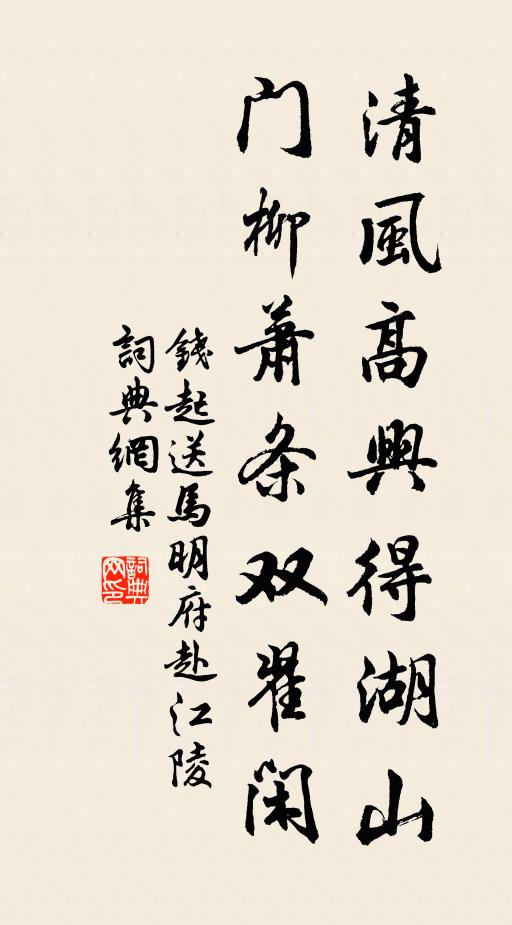 清風高興得湖山
门柳蕭条双翟闲
錢起送馬明府赴江陵
詞典網集
詞典网印